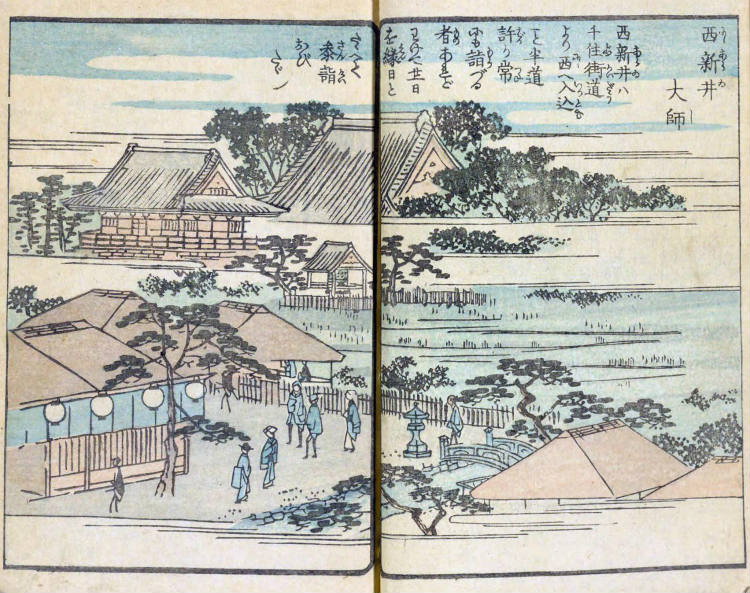 西新井
大師
西新井ハ
千住街道
より西へ入込
こと半道
許り常
にも詣づる
者あれど
廿一日
を縁日と
参詣
おび
たゞし